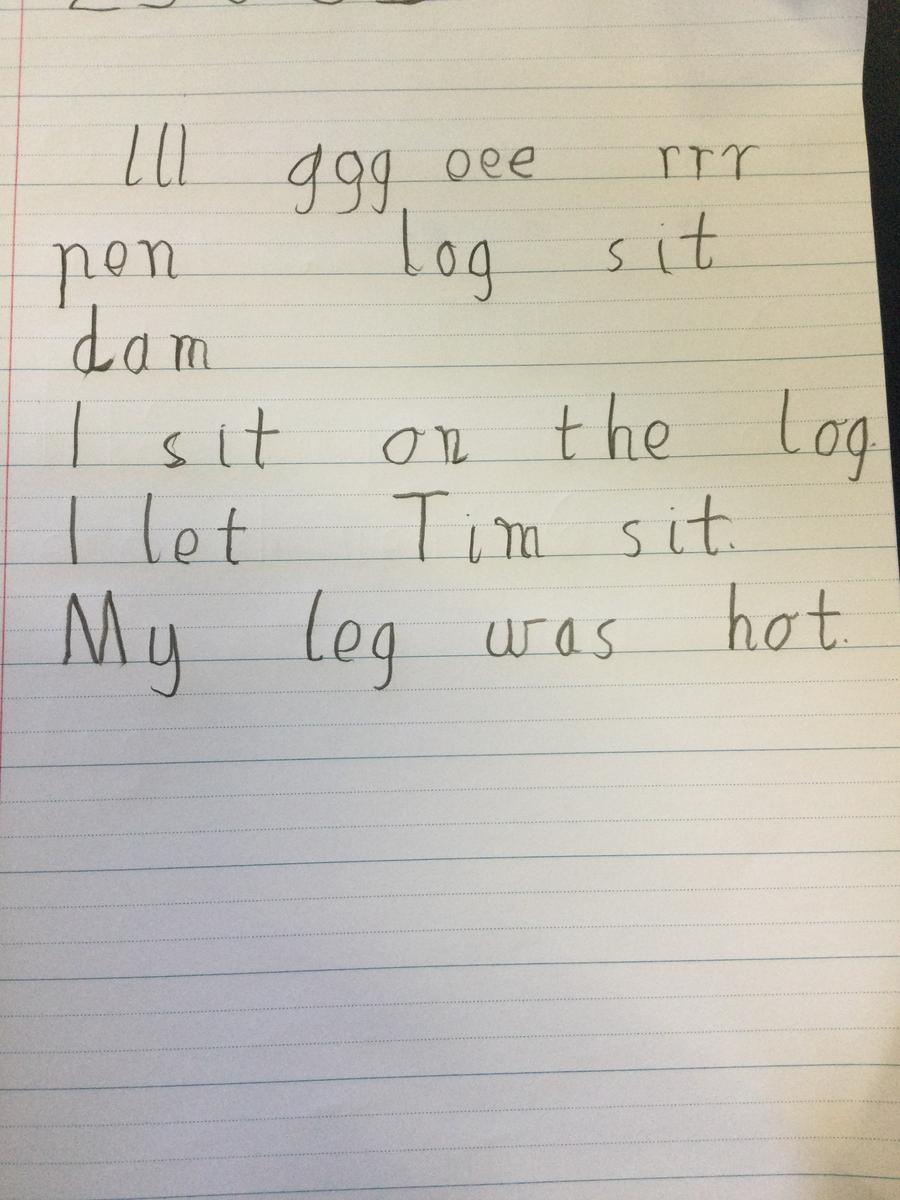 lll ggg oee rrr
pen log sit
dam
I sit on the log.
I let Tim sit.
My leg was hot.